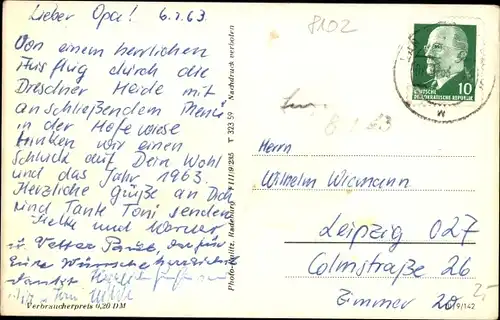 Lieber Opa! 6.1.63
Von einem herrlichen
Ausflug durch die
Dresdner Heide mit
anschließendem Menü
in der Hofewiese
trinken wir einen
Schluck auf Dein Wohl
und das Jahr 1963.
Herzliche Grüße an Dich
und Tante Toni senden
und Werner
u. Vetter
Eure Wünsche herzlich
dankt
Verbraucherpreis 0,20 DM
Nachdruck verboten
T 323 59
III/9/235
Radeburg
8102
DEUTSCHE
DEMOKRATISCHE REPUBLIK
10
Herrn
Wilhelm Wiemann
Leipzig 027
Colmstraße 26
Zimmer 20